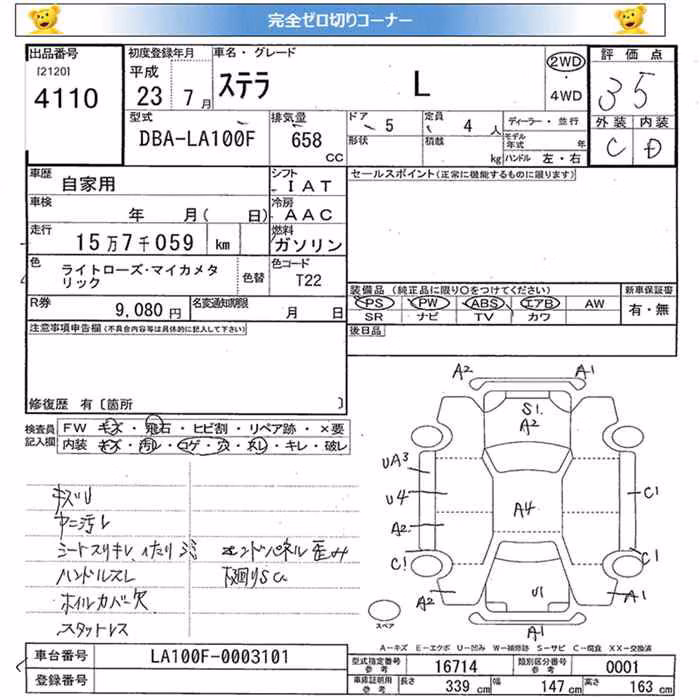 完全ゼロ切りコーナー
出品番号
[2120]
4110
初度登録年月
平成
23 7月
車名・グレード
ステラ L
2WD
・
4WD
評価点
35
型式
DBA-LA100F
排気量
658
CC
ドア
5
形状
定員
4 人
積載
kg
ディーラー・並行
モデル年式 年
ハンドル 左・右
外装 内装
C D
車歴
自家用
シフト
IAT
車検
年 月( 日)
冷房
AAC
走行
15万7千059 km
燃料
ガソリン
色
ライトローズ・マイカメタリック
色替
色コード
T22
R券
9,080 円
名変通知期限
月 日
セールスポイント(正常に機能するものに限ります)
装備品 (純正品に限り〇をつけてください)
新車保証書
PS PW ABS エアB AW
有・無
SR ナビ TV カワ
後日品
注意事項申告欄(不具合内容等は具体的に記入して下さい)
修復歴 有〔箇所 〕
検査員記入欄
FW キズ・飛石・ヒビ割・リペア跡・×要
内装 キズ・汚レ・コゲ・穴・スレ・キレ・破レ
キズU
ヤニ汚レ
シートスリキレ、イタリ
ハンドルスレ
ホイルカバー欠
スタットレス
エンドパネル歪み
下廻りSC
A2 A1
S1
A2
UA3
U4
A2
C1
A4
C1
C1
A2
U1
A1
A1
スペア
A-キズ E-エクボ U-凹み W-補修跡 S-サビ C-腐食 XX-交換済
車台番号
LA100F-0003101
登録番号
型式指定番号
参考
16714
類別区分番号
参考
0001
車庫証明用
参考
長さ 339 cm 幅 147 cm 高さ 163 cm